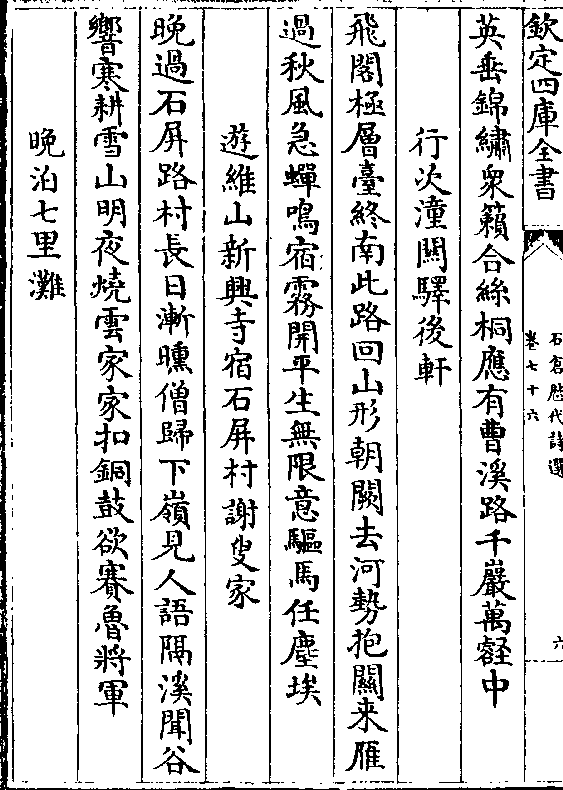 欽定四庫全書
石倉歷代詩選
卷七十六
六
英垂錦繡衆籟合絲桐應有曹溪路千巖萬壑中
行次潼關驛後軒
飛閣極層臺終南此路回山形朝闕去河勢抱關来雁
過秋風急蟬鳴宿霧開平生無限意驅馬任塵埃
遊維山新興寺宿石屏村謝叟家
晚過石屏路村長日漸曛僧歸下嶺見人語隔溪聞谷
響寒耕雪山明夜燒雲家家扣銅鼓欲賽魯將軍
晚泊七里灘